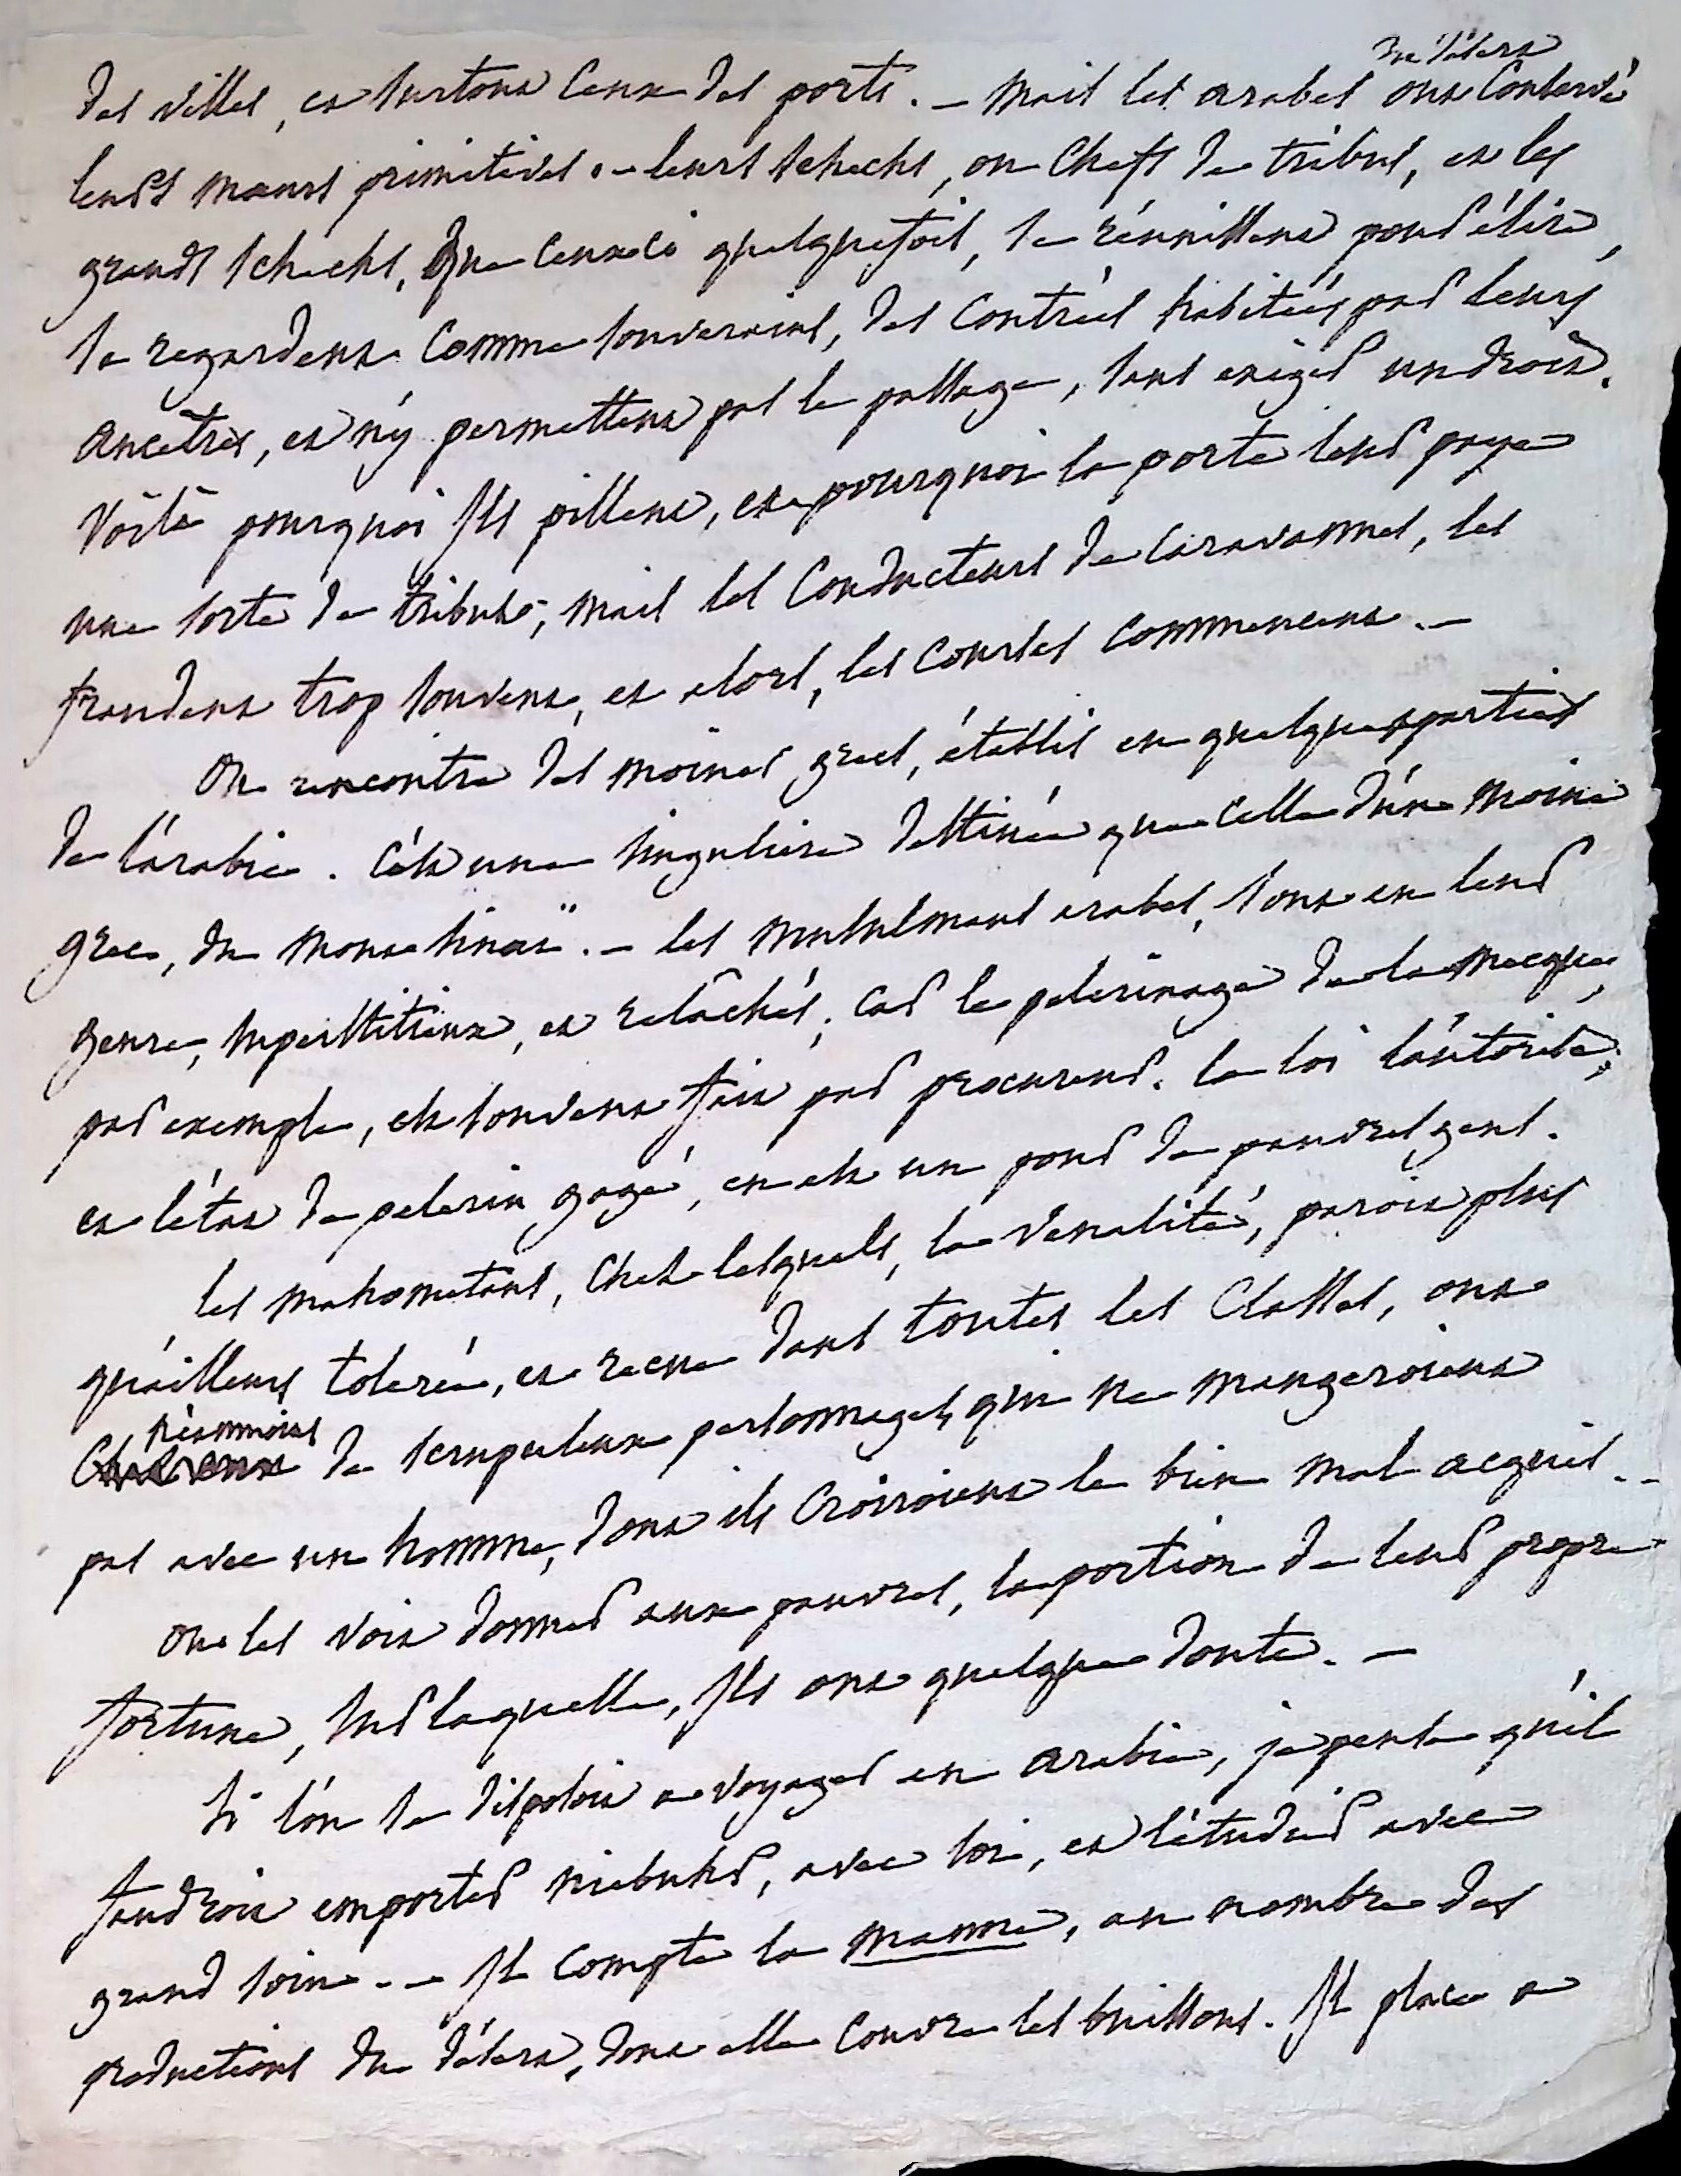 des villes, et surtout ceux des ports. – mais les arabes du désert ont conservé
leurs mœurs primitives. – leurs schechs, ou chefs de tribus, et les
grands schechs, que ceux-ci quelquefois, se réunissent pour élire,
se regardent comme souverains, des contrées habitées par leurs
ancêtres, et n'y permettent pas le passage, sans exiger un droit.
Voilà pourquoi ils pillent, et pourquoi la porte leur paye
une sorte de tribut; mais les conducteurs de caravannes, les
fraudent trop souvent, et alors, les courses commencent. –
On rencontre des moines grecs, établis en quelques parties
de l'arabie. C'est une singulière destinée que celle d'un moine
grec, du mont sinaï. – les musulmans arabes, sont en leur
genre, superstitieux, et relâchés; car le pelerinage de la mecque,
par exemple, est souvent fait par procureur. la loi l'autorise;
et l'état de pelerin gagé, en est un pour de pauvres gens.
les mahometans, chez lesquels, la vénalité, paroit plus
qu'ailleurs tolerée, et recue dans toutes les classes, ont
néanmoins de scrupuleux personnages, qui ne mangeroient
pas avec un homme, dont ils croiroient le bien mal acquis. –
on les voit donner aux pauvres, la portion de leur propre
fortune, sur laquelle, ils ont quelque doute. –
Si l'on se disposoit a voyager en arabie, je pense qu'il
faudroit emporter niebuhr, avec soi, et l'étudier avec
grand soin. – Il compte la manne, au nombre des
productions du désert, dont elle couvre les buissons. Il place a